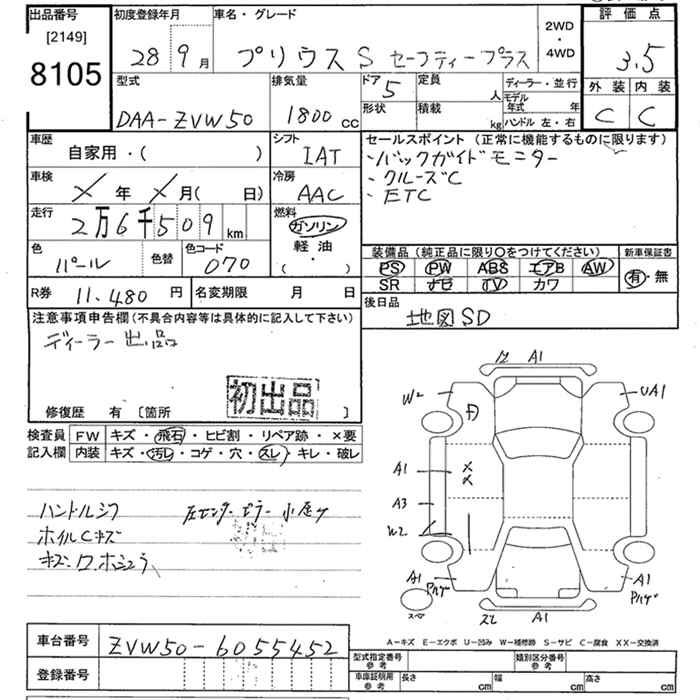 出品番号
[2149]
8105
初度登録年月
28 9月
車名・グレード
プリウス S セーフティープラス
2WD
・
4WD
評価点
3.5
外装 内装
C C
型式
DAA-ZVW50
排気量
1800 cc
ドア
5
定員
人
形状
積載
kg
ディーラー・並行
モデル
年式 年
ハンドル 左・右
車歴
自家用・( )
シフト
IAT
セールスポイント (正常に機能するものに限ります)
・バックガイドモニター
・クルーズC
・ETC
車検
年 月( 日)
冷房
AAC
走行
2万6千509 km
燃料
ガソリン
軽油
( ・ )
色
パール
色替
色コード
070
装備品 (純正品に限り○をつけてください)
PS PW ABS エアB AW
SR ナビ TV カワ
新車保証書
有・無
R券 11,480 円
名変期限 月 日
後日品
地図SD
注意事項申告欄 (不具合内容等は具体的に記入して下さい)
ディーラー出品
初出品
修復歴 有 〔箇所 〕
検査員
記入欄
FW キズ・飛石・ヒビ割・リペア跡・×要
内装 キズ・汚レ・コゲ・穴・スレ・キレ・破レ
ハンドルシワ
左センターピラー
ホイルCキズ
A1
W2
UA1
A1
A3
W2
A1
A1
A1
A-キズ E-エクボ U-凹み W-補修跡 S-サビ C-腐食 XX-交換済
車台番号
ZVW50-6055452
登録番号
型式指定番号
参考
類別区分番号
参考
車庫証明用
参考
長さ cm 幅 cm 高さ cm